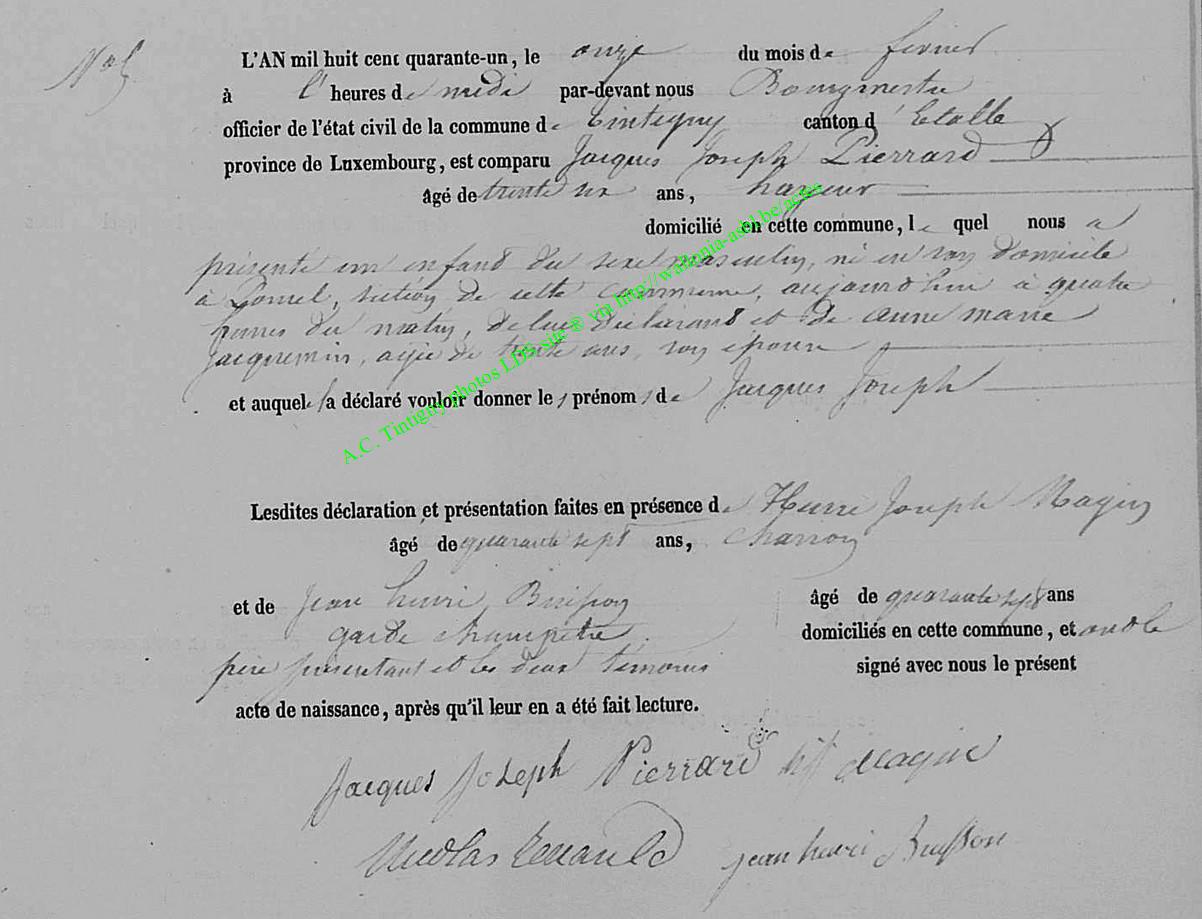 L'AN mil huit cent quarante-un, le onze du mois de fevrier
à l' heures de midi par-devant nous Bourgmestre
officier de l'état civil de la commune de Tintigny canton d' Etalle
province de Luxembourg, est comparu Jacques Joseph Pierrard
âgé de trente six ans,
domicilié en cette commune, le quel nous a
présenté un enfant du sexe masculin, né en son domicile
à section de cette commune, aujourd'hui à quatre
heures du matin, de lui déclarant et de anne marie
jacquemin, agée de trente ans, son epouse
et auquel il a déclaré vouloir donner les prénoms de Jacques Joseph
Lesdites déclaration et présentation faites en présence de Joseph Magin
âgé de quarante sept ans, charron
et de jean henri Buisson âgé de quarante sept ans
garde champetre domiciliés en cette commune, et ont le
père présentant et les deux témoins signé avec nous le présent
acte de naissance, après qu'il leur en a été fait lecture.
Jacques Joseph Pierrard Magin
Nicolas jean henri Buisson
A.C. Tintigny photos LDS site ® via http://wallonia-asbl.be/actes